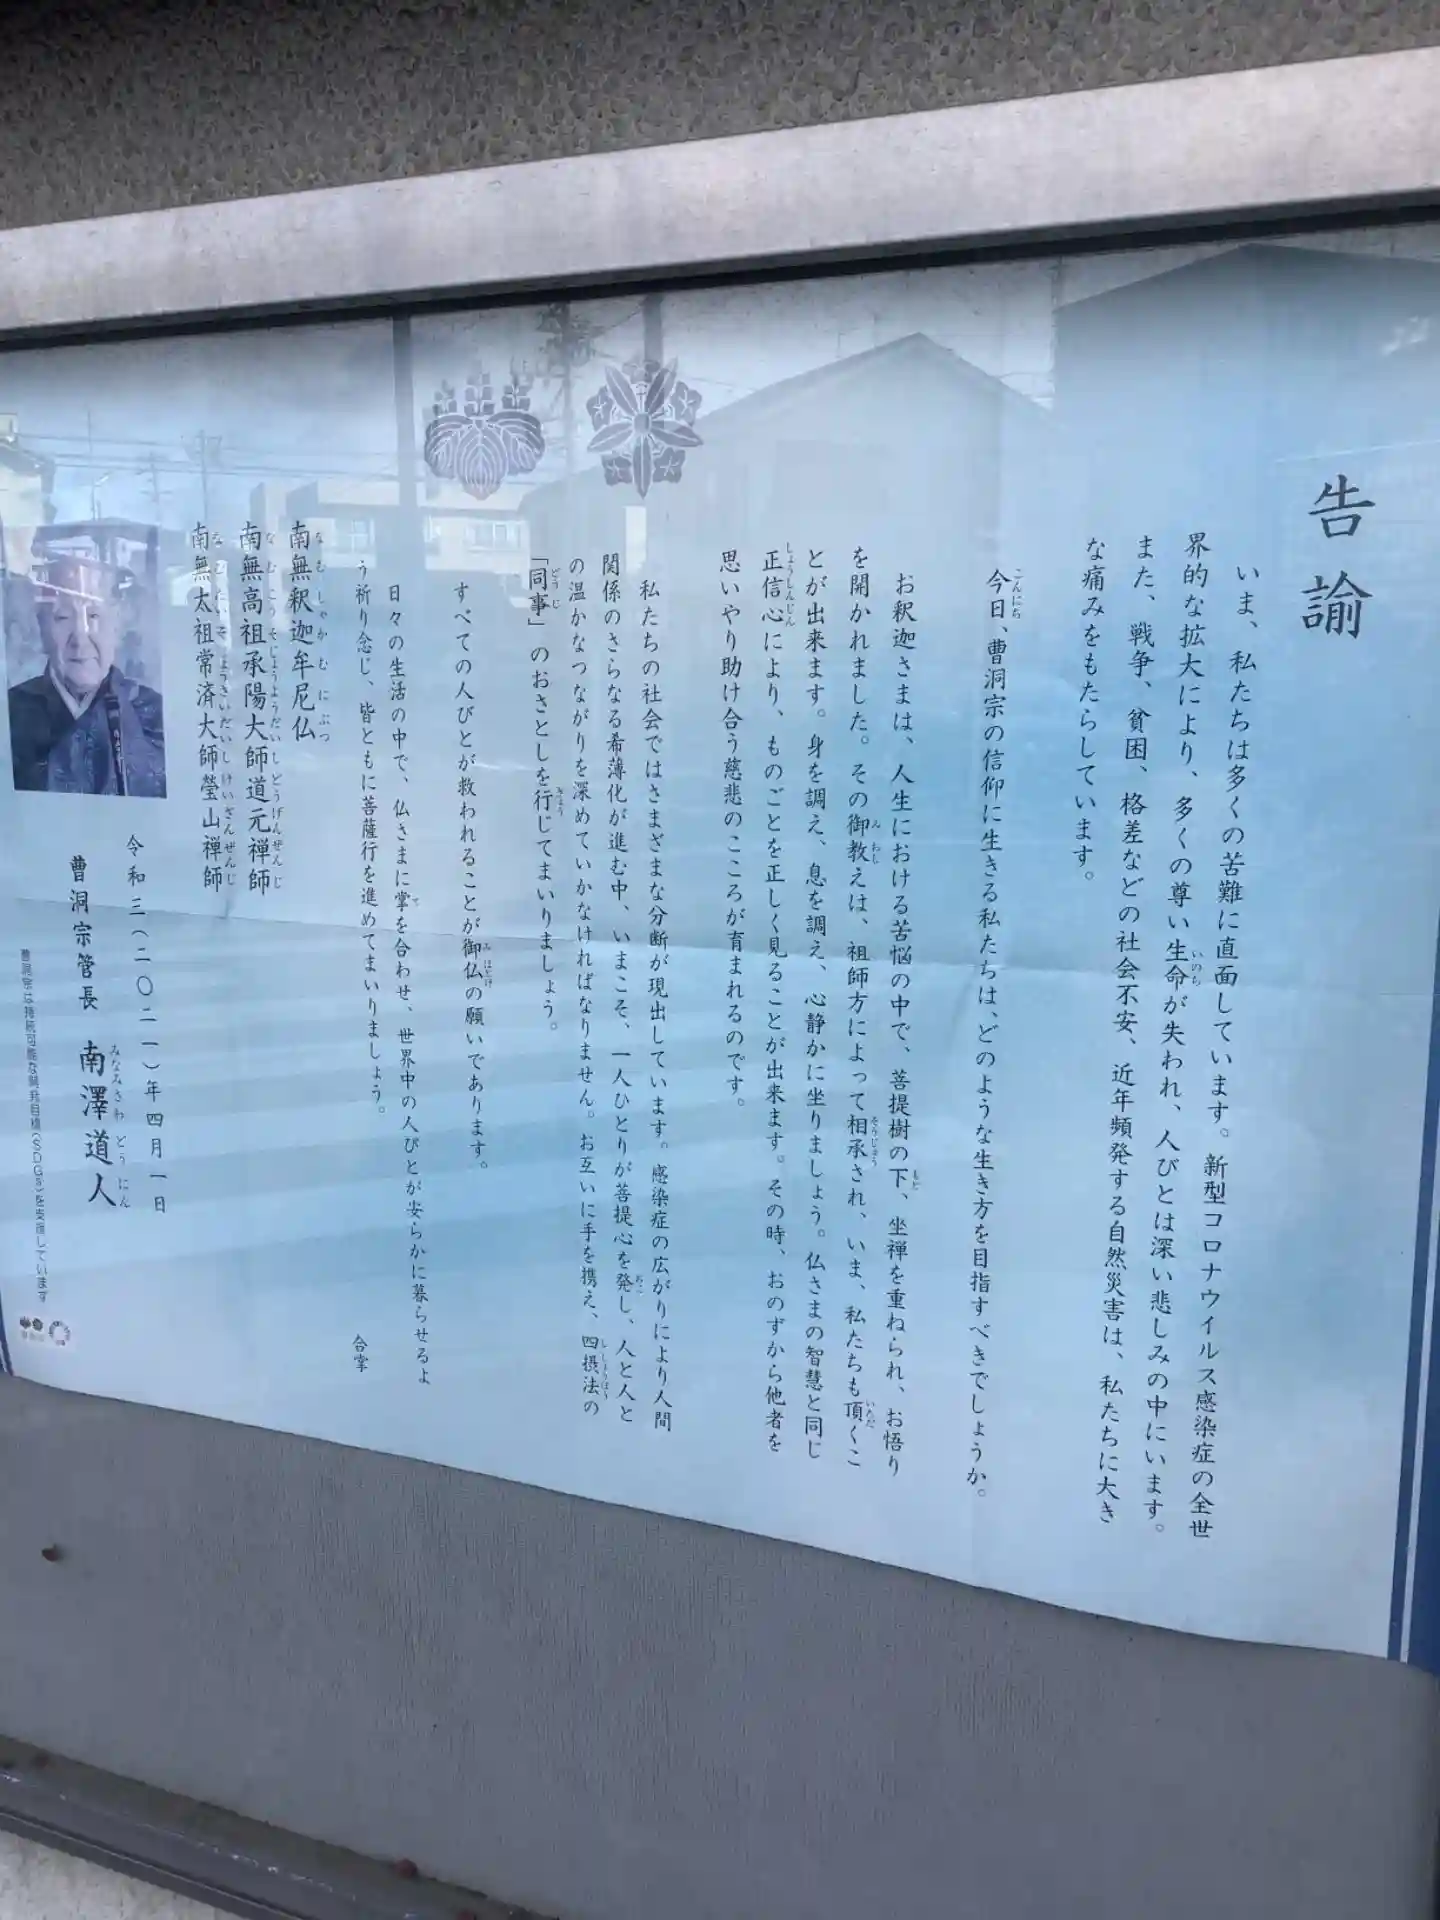 告諭
いま、私たちは多くの苦難に直面しています。新型コロナウイルス感染症の全世
界的な拡大により、多くの尊い生命が失われ、人びとは深い悲しみの中にいます。
また、戦争、貧困、格差などの社会不安、近年頻発する自然災害は、私たちに大き
な痛みをもたらしています。
今日、曹洞宗の信仰に生きる私たちは、どのような生き方を目指すべきでしょうか。
お釈迦さまは、人生における苦悩の中で、菩提樹の下、坐禅を重ねられ、お悟り
を開かれました。その御教えは、祖師方によって相承され、いま、私たちも頂くこ
とが出来ます。身を調え、息を調え、心静かに坐りましょう。仏さまの智慧と同じ
正信心により、ものごとを正しく見ることが出来ます。その時、おのずから他者を
思いやり助け合う慈悲のこころが育まれるのです。
私たちの社会ではさまざまな分断が現出しています。感染症の広がりにより人間
関係のさらなる希薄化が進む中、いまこそ、一人ひとりが菩提心を発し、人と人と
の温かなつながりを深めていかなければなりません。お互いに手を携え、四摂法の
「同事」のおさとしを行じてまいりましょう。
すべての人びとが救われることが御仏の願いであります。
日々の生活の中で、仏さまに掌を合わせ、世界中の人びとが安らかに暮らせるよ
う祈り念じ、皆ともに菩薩行を進めてまいりましょう。
合掌
南無釈迦牟尼仏
南無高祖承陽大師道元禅師
南無太祖常済大師瑩山禅師
令和三(二〇二一)年四月一日
曹洞宗管長 南澤道人
曹洞宗は持続可能な開発目標(SDGs)を支援しています